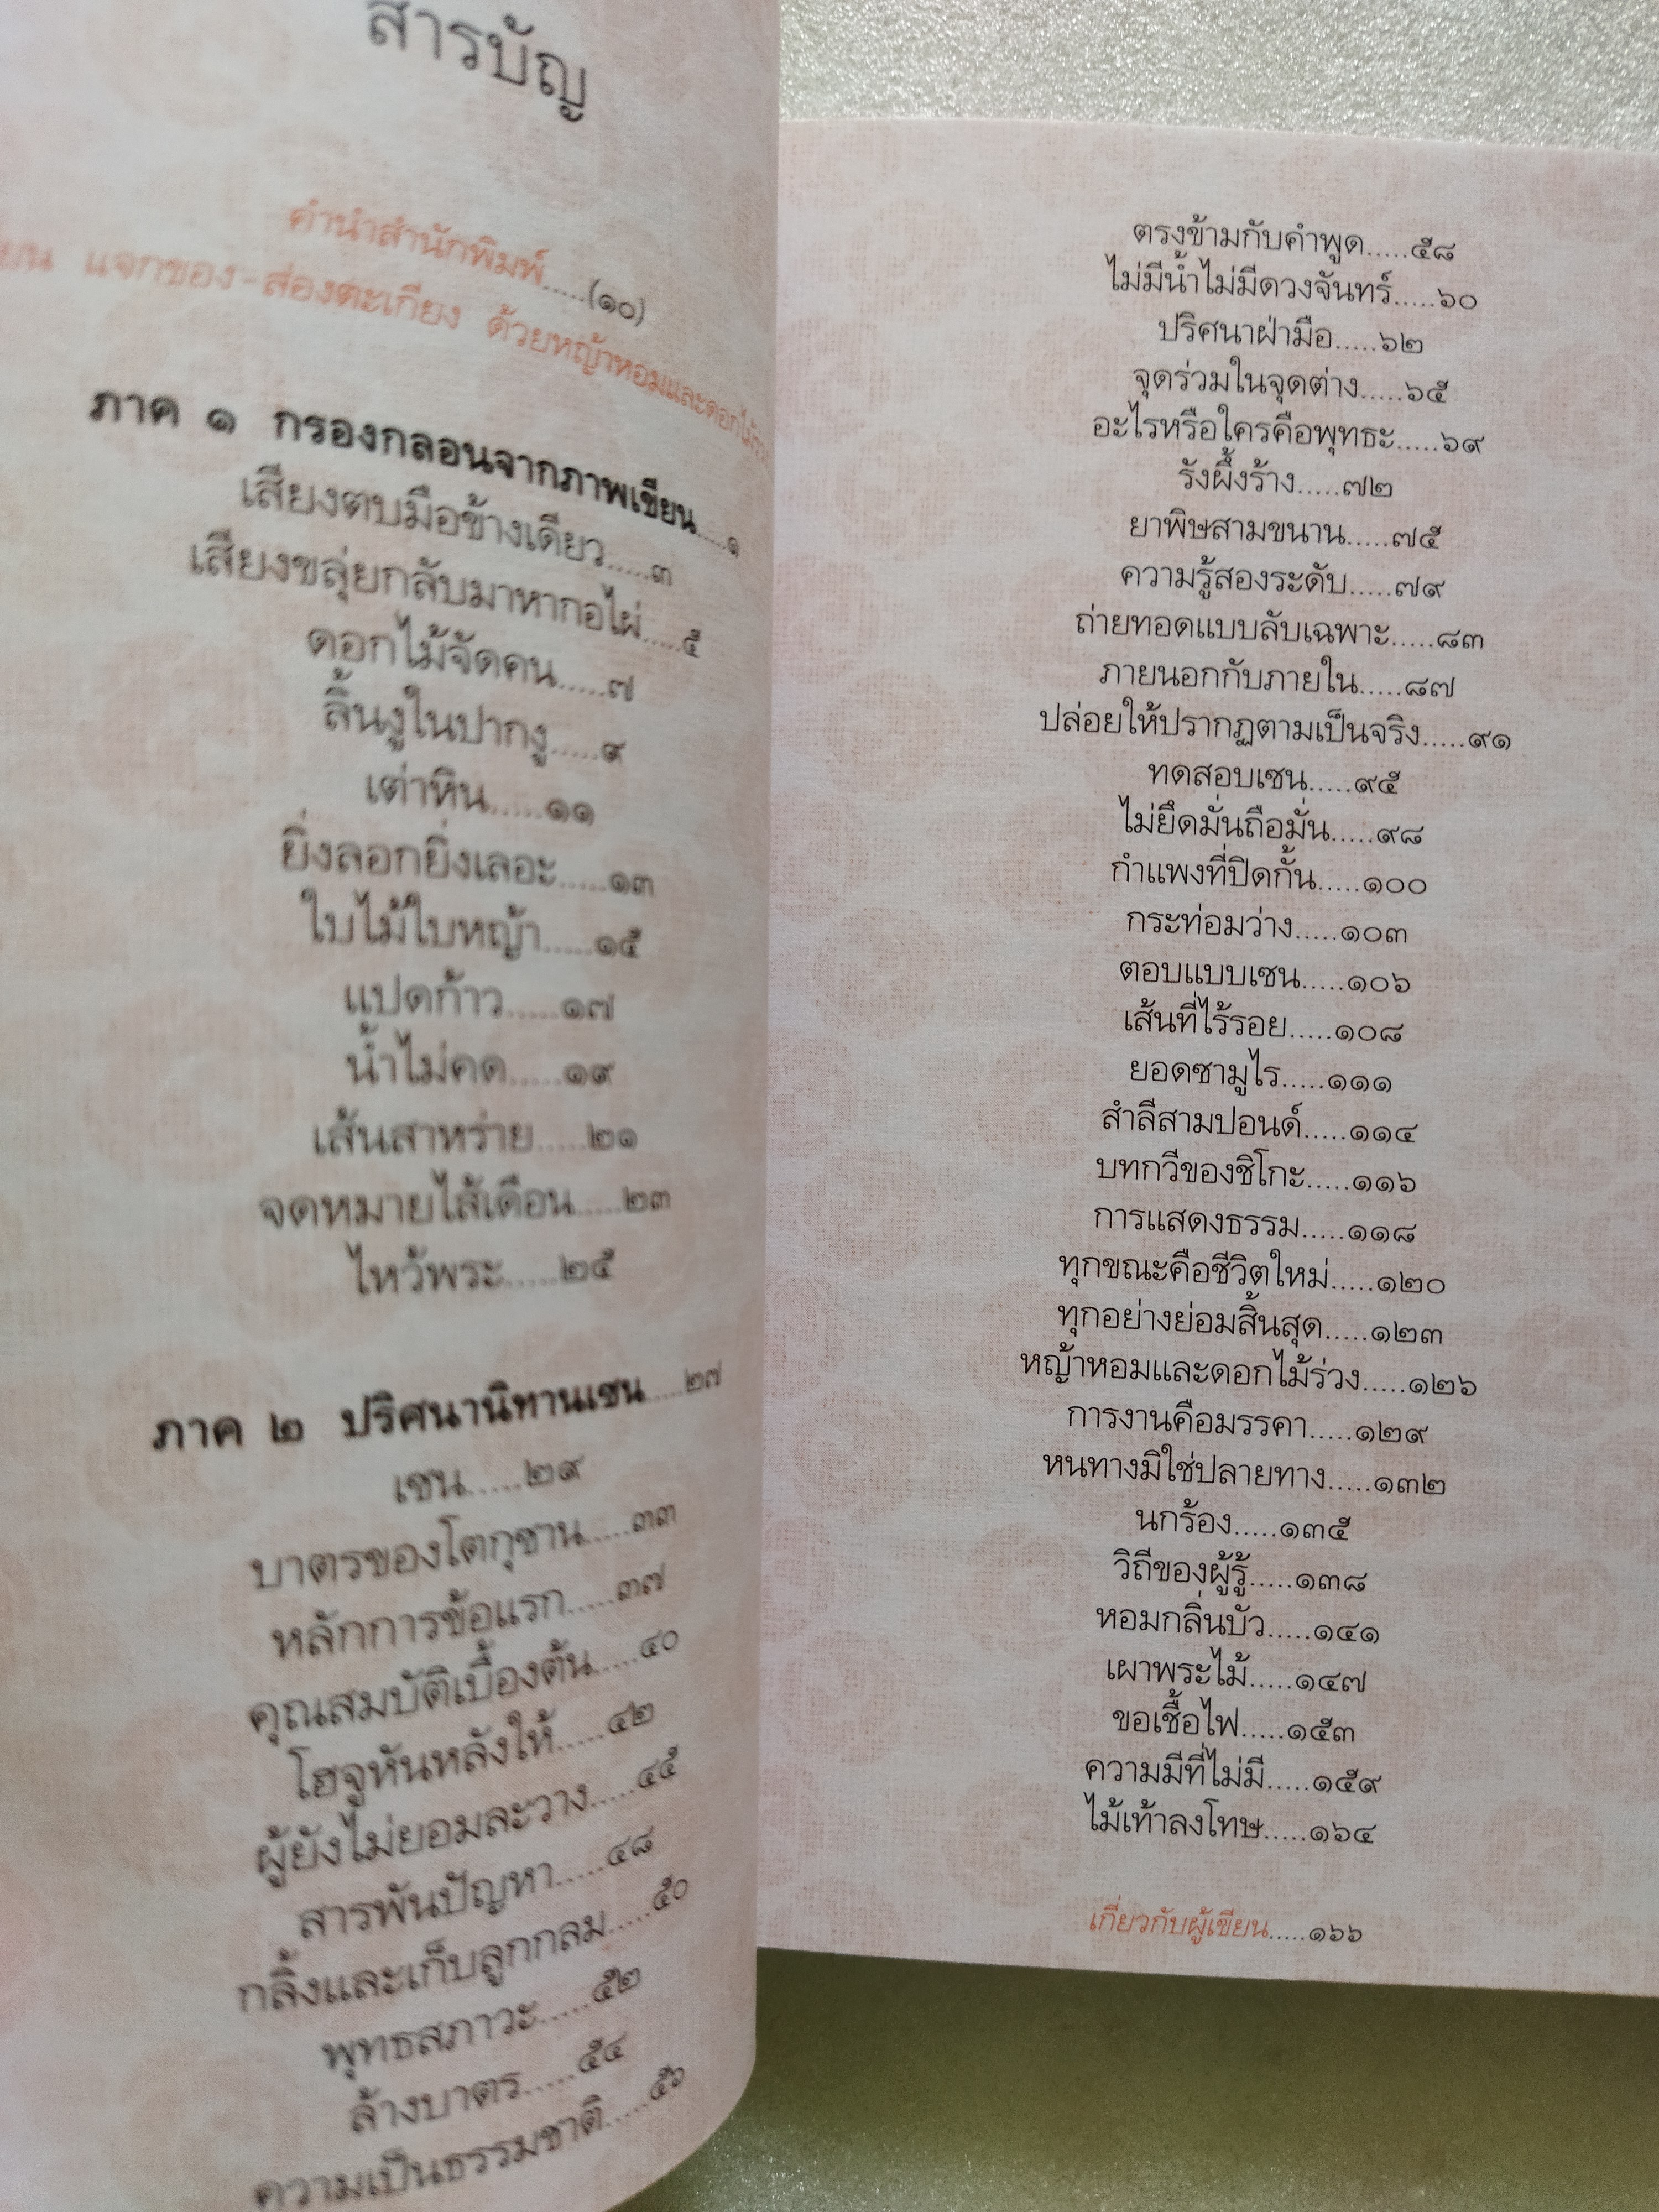 สารบัญ
คำนำสำนักพิมพ์.....(๑๐)
แจกของ-ส่องตะเกียง ด้วยหญ้าหอมและดอกไม้
ภาค ๑ กรองกลอนจากภาพเขียน.....๑
เสียงตบมือข้างเดียว.....๓
เสียงขลุ่ยกลับมาหากอไผ่.....๕
ดอกไม้จัดคน.....๗
ลิ้นงูในปากงู.....๙
เต่าหิน.....๑๑
ยิ่งลอกยิ่งเลอะ.....๑๓
ใบไม้ใบหญ้า.....๑๕
แปดก้าว.....๑๗
น้ำไม่คด.....๑๙
เส้นสาหร่าย.....๒๑
จดหมายไส้เดือน.....๒๓
ไหว้พระ.....๒๕
ภาค ๒ ปริศนานิทานเซน.....๒๗
เซน.....๒๙
บาตรของโตกุซาน.....๓๓
หลักการข้อแรก.....๓๗
คุณสมบัติเบื้องต้น.....๔๐
โฮจูหันหลังให้.....๔๒
ผู้ยังไม่ยอมละวาง.....๔๕
สารพันปัญหา.....๔๘
กลิ้งและเก็บลูกกลม.....๕๐
พุทธสภาวะ.....๕๒
ล้างบาตร.....๕๔
ความเป็นธรรมชาติ.....๕๖
ตรงข้ามกับคำพูด.....๕๘
ไม่มีน้ำไม่มีดวงจันทร์.....๖๐
ปริศนาฝ่ามือ.....๖๒
จุดร่วมในจุดต่าง.....๖๕
อะไรหรือใครคือพุทธะ.....๖๙
รังผึ้งร้าง.....๗๒
ยาพิษสามขนาน.....๗๕
ความรู้สองระดับ.....๗๙
ถ่ายทอดแบบลับเฉพาะ.....๘๓
ภายนอกกับภายใน.....๘๗
ปล่อยให้ปรากฏตามเป็นจริง.....๙๑
ทดสอบเซน.....๙๕
ไม่ยึดมั่นถือมั่น.....๙๘
กำแพงที่ปิดกั้น.....๑๐๐
กระท่อมว่าง.....๑๐๓
ตอบแบบเซน.....๑๐๖
เส้นที่ไร้รอย.....๑๐๘
ยอดซามูไร.....๑๑๑
สำลีสามปอนด์.....๑๑๔
บทกวีของชิโกะ.....๑๑๖
การแสดงธรรม.....๑๑๘
ทุกขณะคือชีวิตใหม่.....๑๒๐
ทุกอย่างย่อมสิ้นสุด.....๑๒๓
หญ้าหอมและดอกไม้ร่วง.....๑๒๖
การงานคือมรรคา.....๑๒๙
หนทางมิใช่ปลายทาง.....๑๓๒
นกร้อง.....๑๓๕
วิถีของผู้รู้.....๑๓๘
หอมกลิ่นบัว.....๑๔๑
เผาพระไม้.....๑๔๗
ขอเชื้อไฟ.....๑๕๓
ความมีที่ไม่มี.....๑๕๙
ไม้เท้าลงโทษ.....๑๖๔
เกี่ยวกับผู้เขียน.....๑๖๖